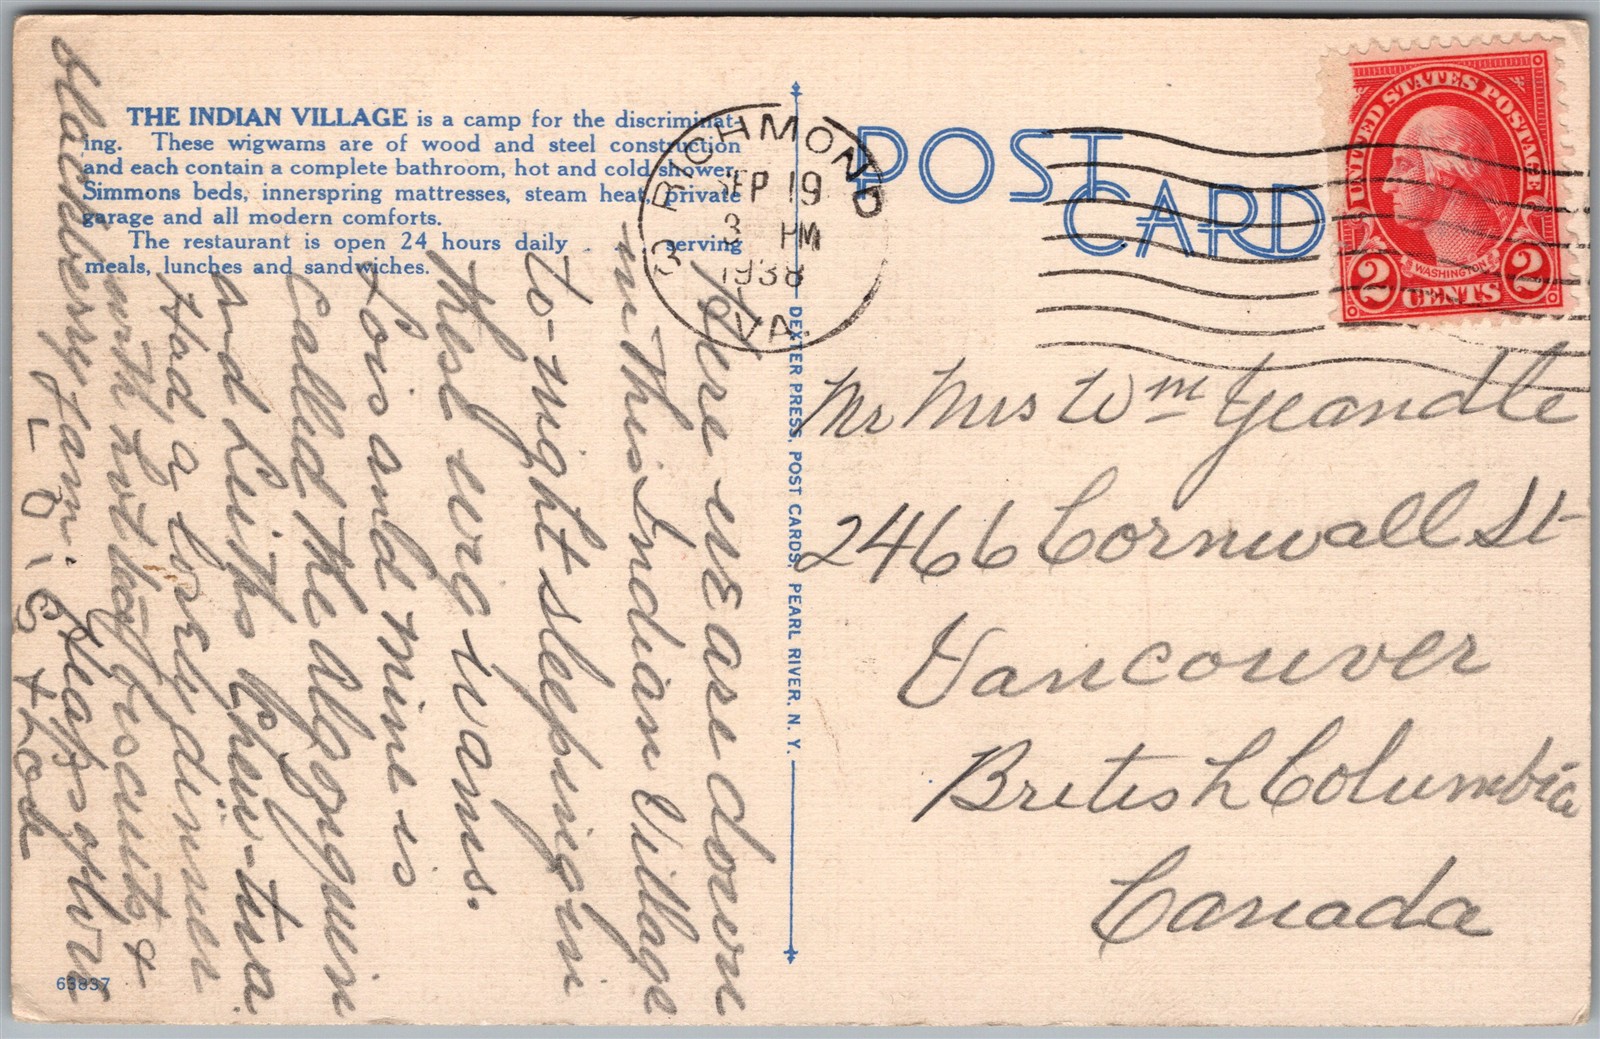 THE INDIAN VILLAGE is a camp for the discriminat-
ing. These wigwams are of wood and steel construction
and each contain a complete bathroom, hot and cold shower,
Simmons beds, innerspring mattresses, steam heat, private
garage and all modern comforts.
The restaurant is open 24 hours daily serving
meals, lunches and sandwiches.
Here we are down
in this Indian Village
to-night sleeping in
these wig wams.
Lois and mine is
Called the Algonquin
and
Had a lovely dinner
with hot biscuits &
blackberry jam. of love
63837
DEXTER PRESS, POST CARDS, PEARL RIVER, N. Y.
POST
CARD
RICHMOND
SEP 19
3 PM
1938
VA.
3
UNITED STATES POSTAGE
WASHINGTON
2 CENTS 2
Mr Mrs Wm Yeandle
2466 Cornwall St
Vancouver
British Columbia
Canada